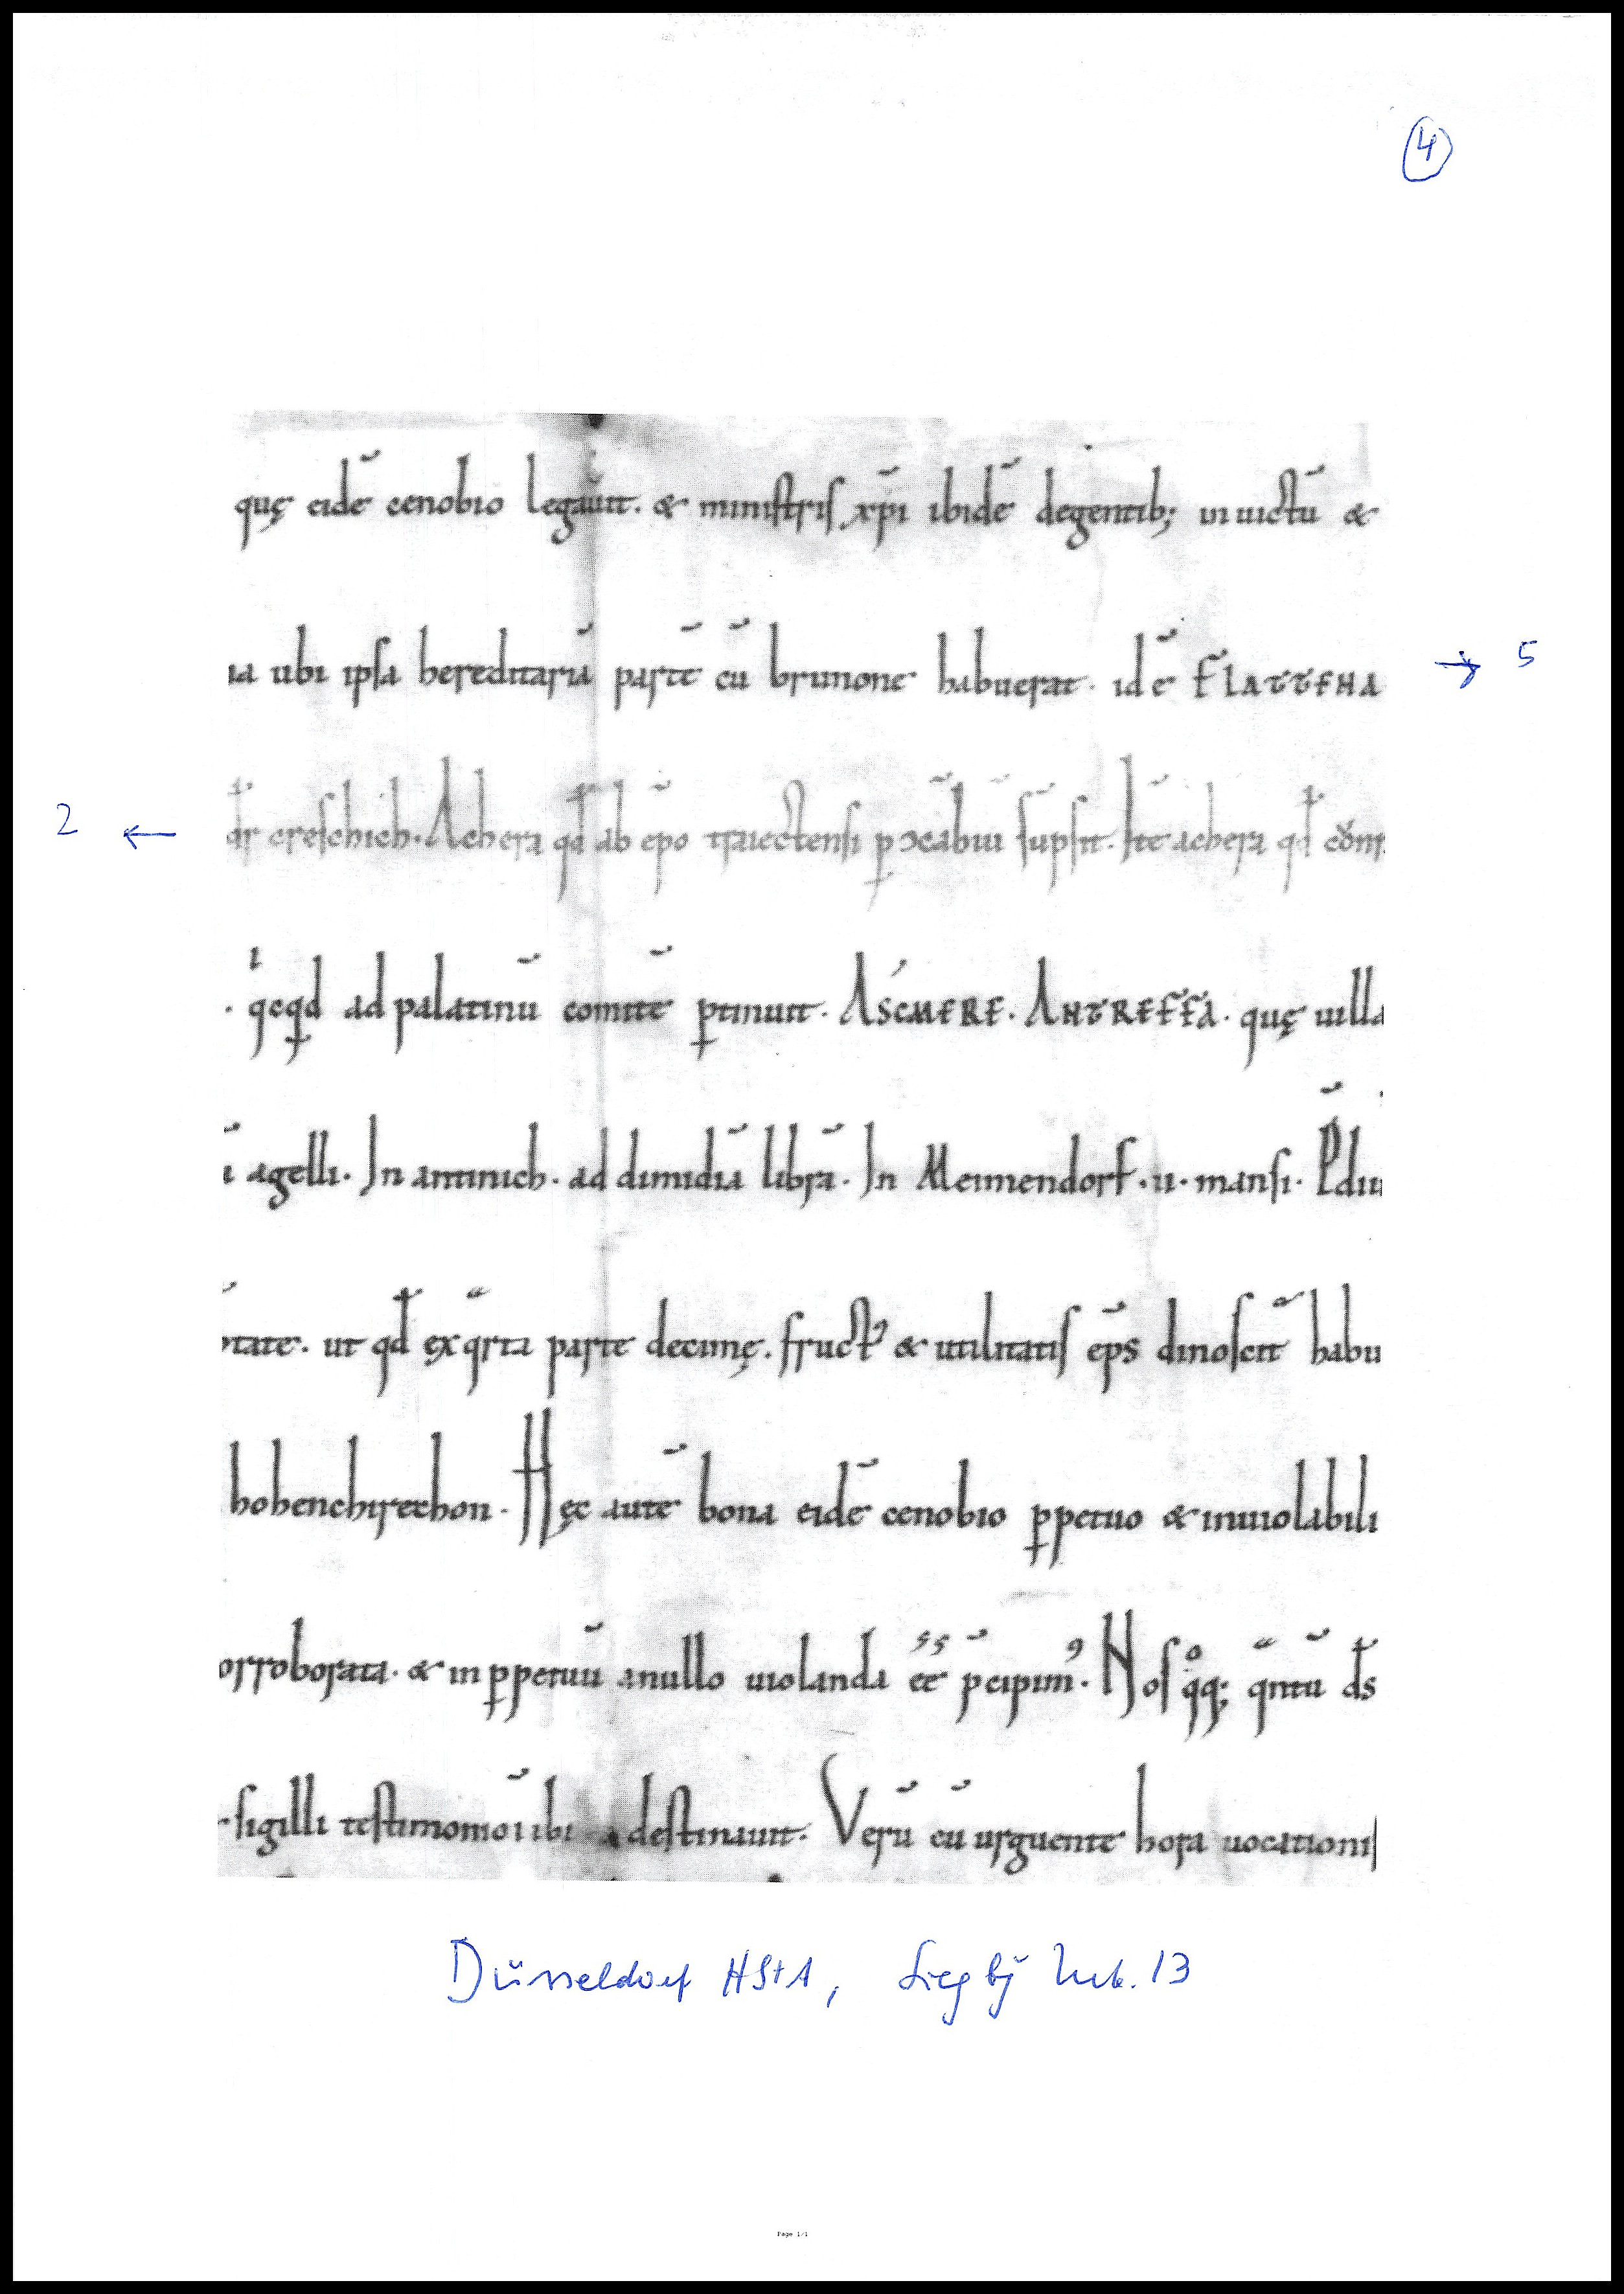 4
quę eidē cenobio legauit. & ministris xp̄i ibidē degentib; in uictū &
ia ubi ipsa hereditariā partē cū brunone habuerat. id ē FLATTENA
→ 5
2 ←
dr creschich. Achera qđ ab ep̄o traiectensi p̱ ɔcābiū sūpsit. Itē achera qđ
. qⁱcqđ ad palatinū comitē ꝑtinuit. ASCMERE. ANTREFFA. quę uilla
i agelli. In antinich. ad dimidiā librā. In Meimendorf. ii. mansi.
tate. ut qđ ex qᵃrta parte decimę. fruct⁹ & utilitatis ep̄s dinoscit̄ habu
hohenchirechon. Hęc autē bona eidē cenobio ꝑpetuo & inuiolabili
orroborata. & in ꝑpetuū a nullo uiolanda eē p̄cipim⁹. Nos qᵒq; qᵃntū ds̄
sigilli testimonio ibi destinauit. Verū cū urguente hora uocationis
Düsseldorf HStA, Siegbg Urk. 13
Page 1/1